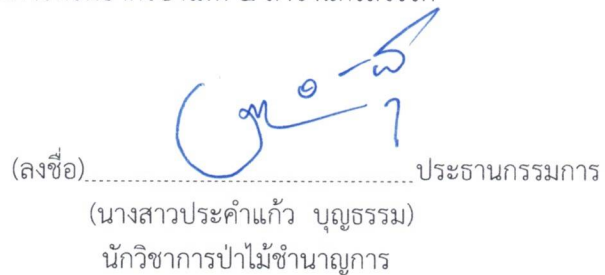 (ลงชื่อ)........................................................ประธานกรรมการ
(นางสาวประคำแก้ว บุญธรรม)
นักวิชาการป่าไม้ชำนาญการ